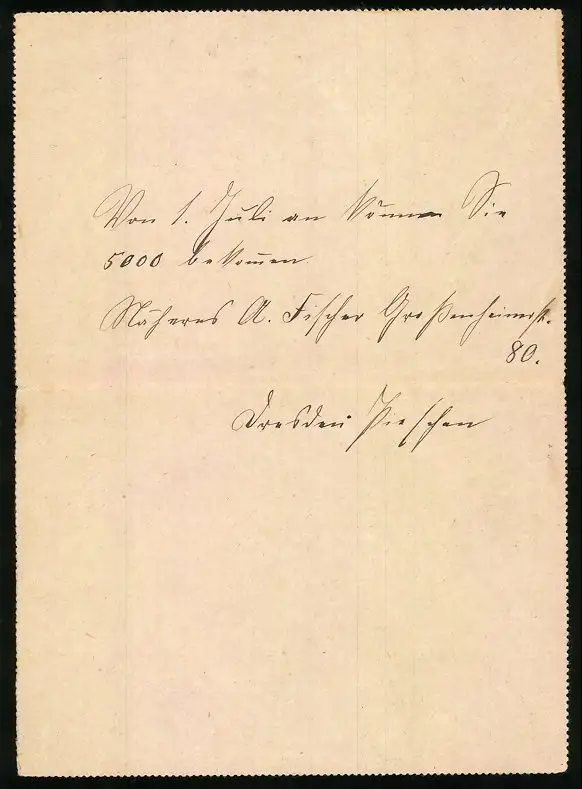 Von 1. Juli an können Sie
5000 bekommen.
Näheres A. Fischer Großenheinerst.
80.
Dresden Pieschen